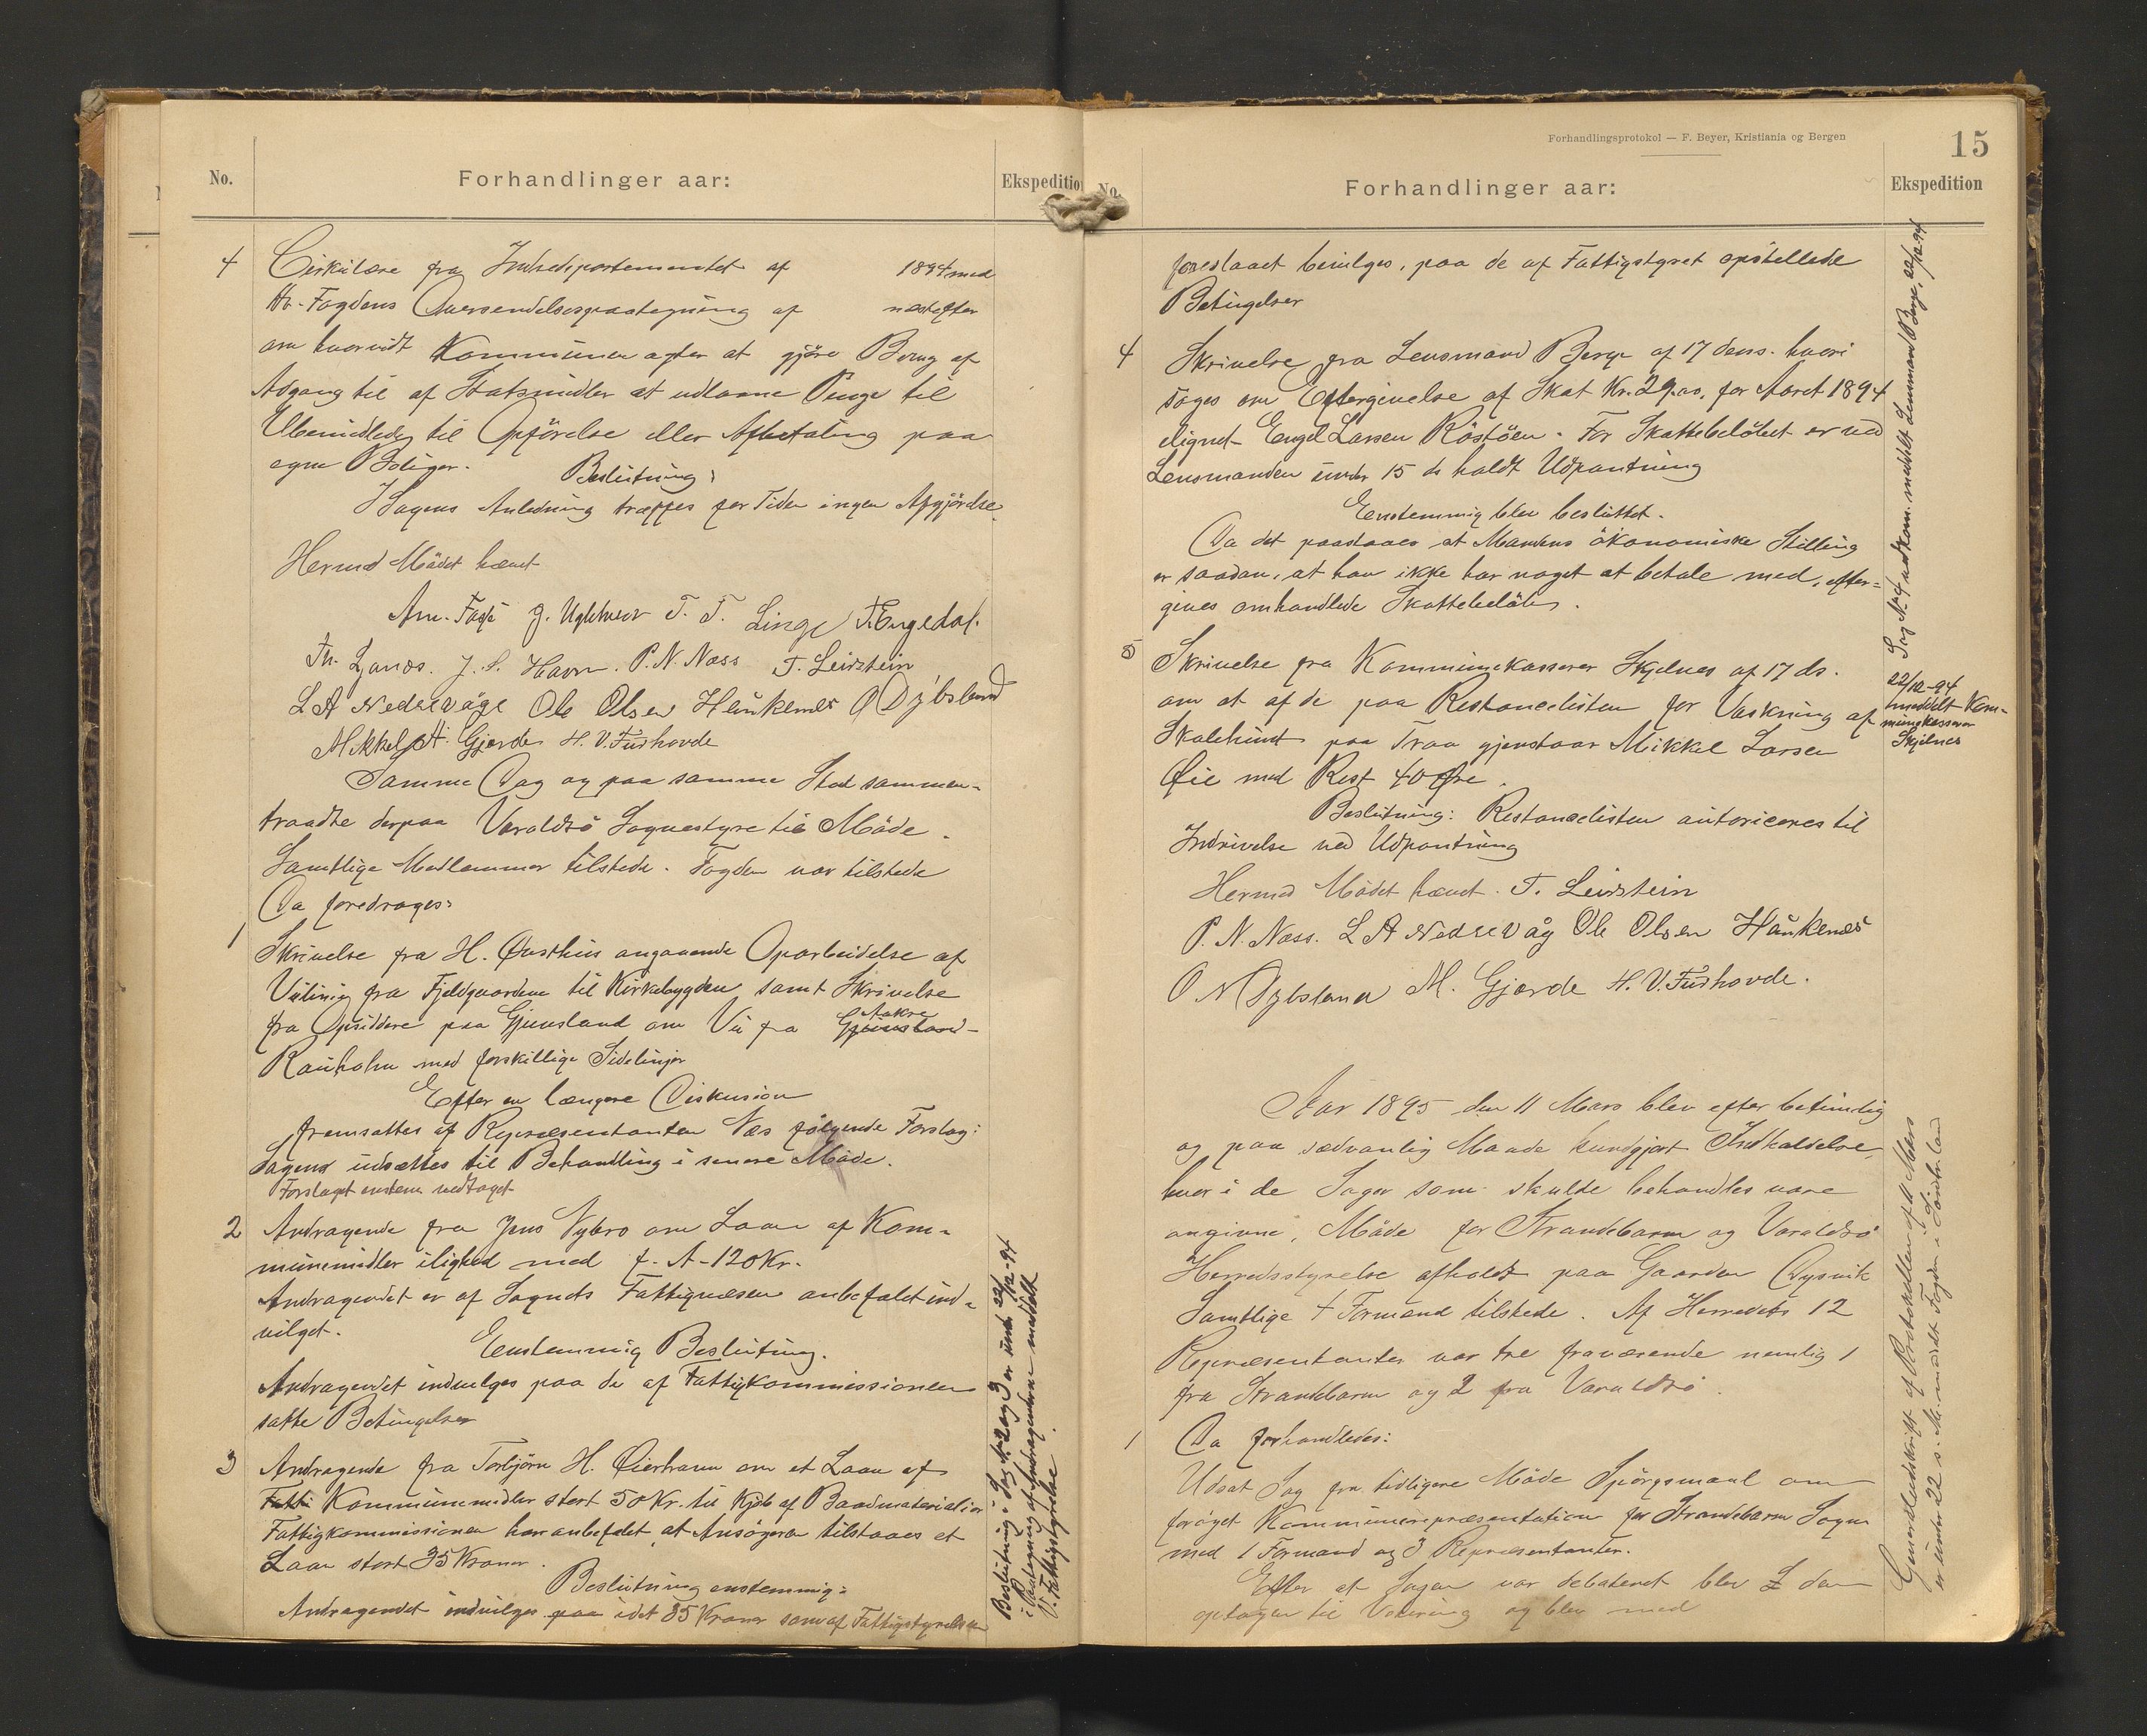 No.
Forhandlinger aar:
Ekspedition
4 Cirkulære fra Indredepartementet af 1894 med
Hr. Fogdens Oversendelsespaategning af næstefter
om hvorvidt Kommunen agter at gjöre Brug af
Adgang til af Statsmidler at udlaane Penge til
Ubemidlede til Opförelse eller Afbetaling paa
egne Boliger.
Beslutning:
I Sagens Anledning træffes for Tiden ingen Afgjörelse.
Hermed Mödet hævet
J. Uglhus T. T. Linge T. Engedal.
Th. J. S. Havn. P. N. Næss T. Leirstein
L A Nedrevåge Ole Olsen Haukenæs O Dybsland
Mikkel A. Gjerde H. V. Furhovde
Samme Dag og paa samme Sted sammen-
traadte derpaa Varaldsö Sognestyre til Möde.
Samtlige Medlemmer tilstede. Fogden var tilstede
Da foredrages:
1
Skrivelse fra H. Øvsthus angaaende Oparbeidelse af
Veilinie fra Fjeldgaardene til Kirkebygden samt Skrivelse
fra Opsiddere paa Gjuvsland om Vei fra Gjuvsland-
Aakre
Rauholm med forskillige Sidelinjer
Efter en længere Diskusion
fremsattes af Repræsentanten Næs følgende Forslag:
Sagens udsættes til Behandling i senere Möde.
Forslaget enstem. vedtaget
2 Andragende fra Jens Nybro om Laan af Kom-
munemidler ilighed med f. A - 120 Kr.
Andragendet er af Sognets Fattigvæsen anbefalet ind-
vilget.
Eenstemmig Beslutning.
Andragendet indvilges paa de af Fattigkommissionen
satte Betingelser
3 Andragende fra Torbjörn H. Øierhavn om et Laan af
Fatti Kommunemidler stort 50 Kr. til Kjöb af Baadmaterialier
Fattigkommissionen har anbefalet at Ansögeren tilstaaes et
Laan stort 35 Kroner.
Beslutning enstemmig:
Andragendet indvilges paa idet 35 Kroner som af Fattigstyrelsen
Beslutning i Sag N. 2 og 3 er under 22/12-94
i Paategning af Andragenderne meddelt
V. Fattigstyrelse.
Forhandlingsprotokol — F. Beyer, Kristiania og Bergen
15
No.
Forhandlinger aar:
Ekspedition
foreslaaet bevilges, paa de af Fattigstyret opstillede
Betingelser
4 Skrivelse fra Lensmand Berge af 17 dens. hvori
söges om Eftergivelse af Skat Kr. 29.00, for Aaret 1894
elignet Engel Larsen Röstöen. For Skattebelöbet er ved
Lensmanden under 15 ds holdt Udpantning
Eenstemmig blev besluttet.
Da det paastaaes at Mandens ökonomiske Stilling
er saadan, at han ikke har noget at betale med, efter-
gives omhandlede Skattebelöb.
Sag N. 4 udkom. meddelt Lensmand Berge, 22/12 94
5 Skrivelse fra Kommunekasserer Skjelnes af 17 ds.
om at af de paa Restancelisten for Vaskning af
Skolehuset paa Traa gjenstaar Mikkel Larsen
Øie med Rest 40 Øre.
22/12-94
meddelt Kom-
munekasserer
Skjelnes
Beslutning: Restancelisten autoriceres til
Indrivelse ved Udpantning
Hermed Mödet hævet. T. Leirstein
P. N. Næss. L A Nedrevåg Ole Olsen Haukenæs
O N Dybsland M. Gjerde H. V. Furhovde.
Aar 1895 den 11 Mars blev efter betimelig
og paa sædvanlig Maade kundgjort Indkaldelse,
hvor i de Sager som skulde behandles vare
angivne, Möde for Strandebarm og Varaldsö
Herredsstyrelse afholdt paa Gaarden Dysvik
Samtlige 4 Formænd tilstede. Af Herredets 12
Repræsentanter var tre fraværende nemlig 1
fra Strandebarm og 2 fra Varaldsö.
Da forhandledes:
1
Udsat Sag fra tidligere Möde Spörgsmaal om
foröget Kommunerepræsentation for Strandebarm Sogn
med 1 Formand og 3 Repræsentanter.
Efter at Sagen var debateret blev den
optagen til Votering og blev med
Genpartudskrift af Protokollen af 11 Mars
er under 22 s. M. meddelt Fogden i Söndhordland